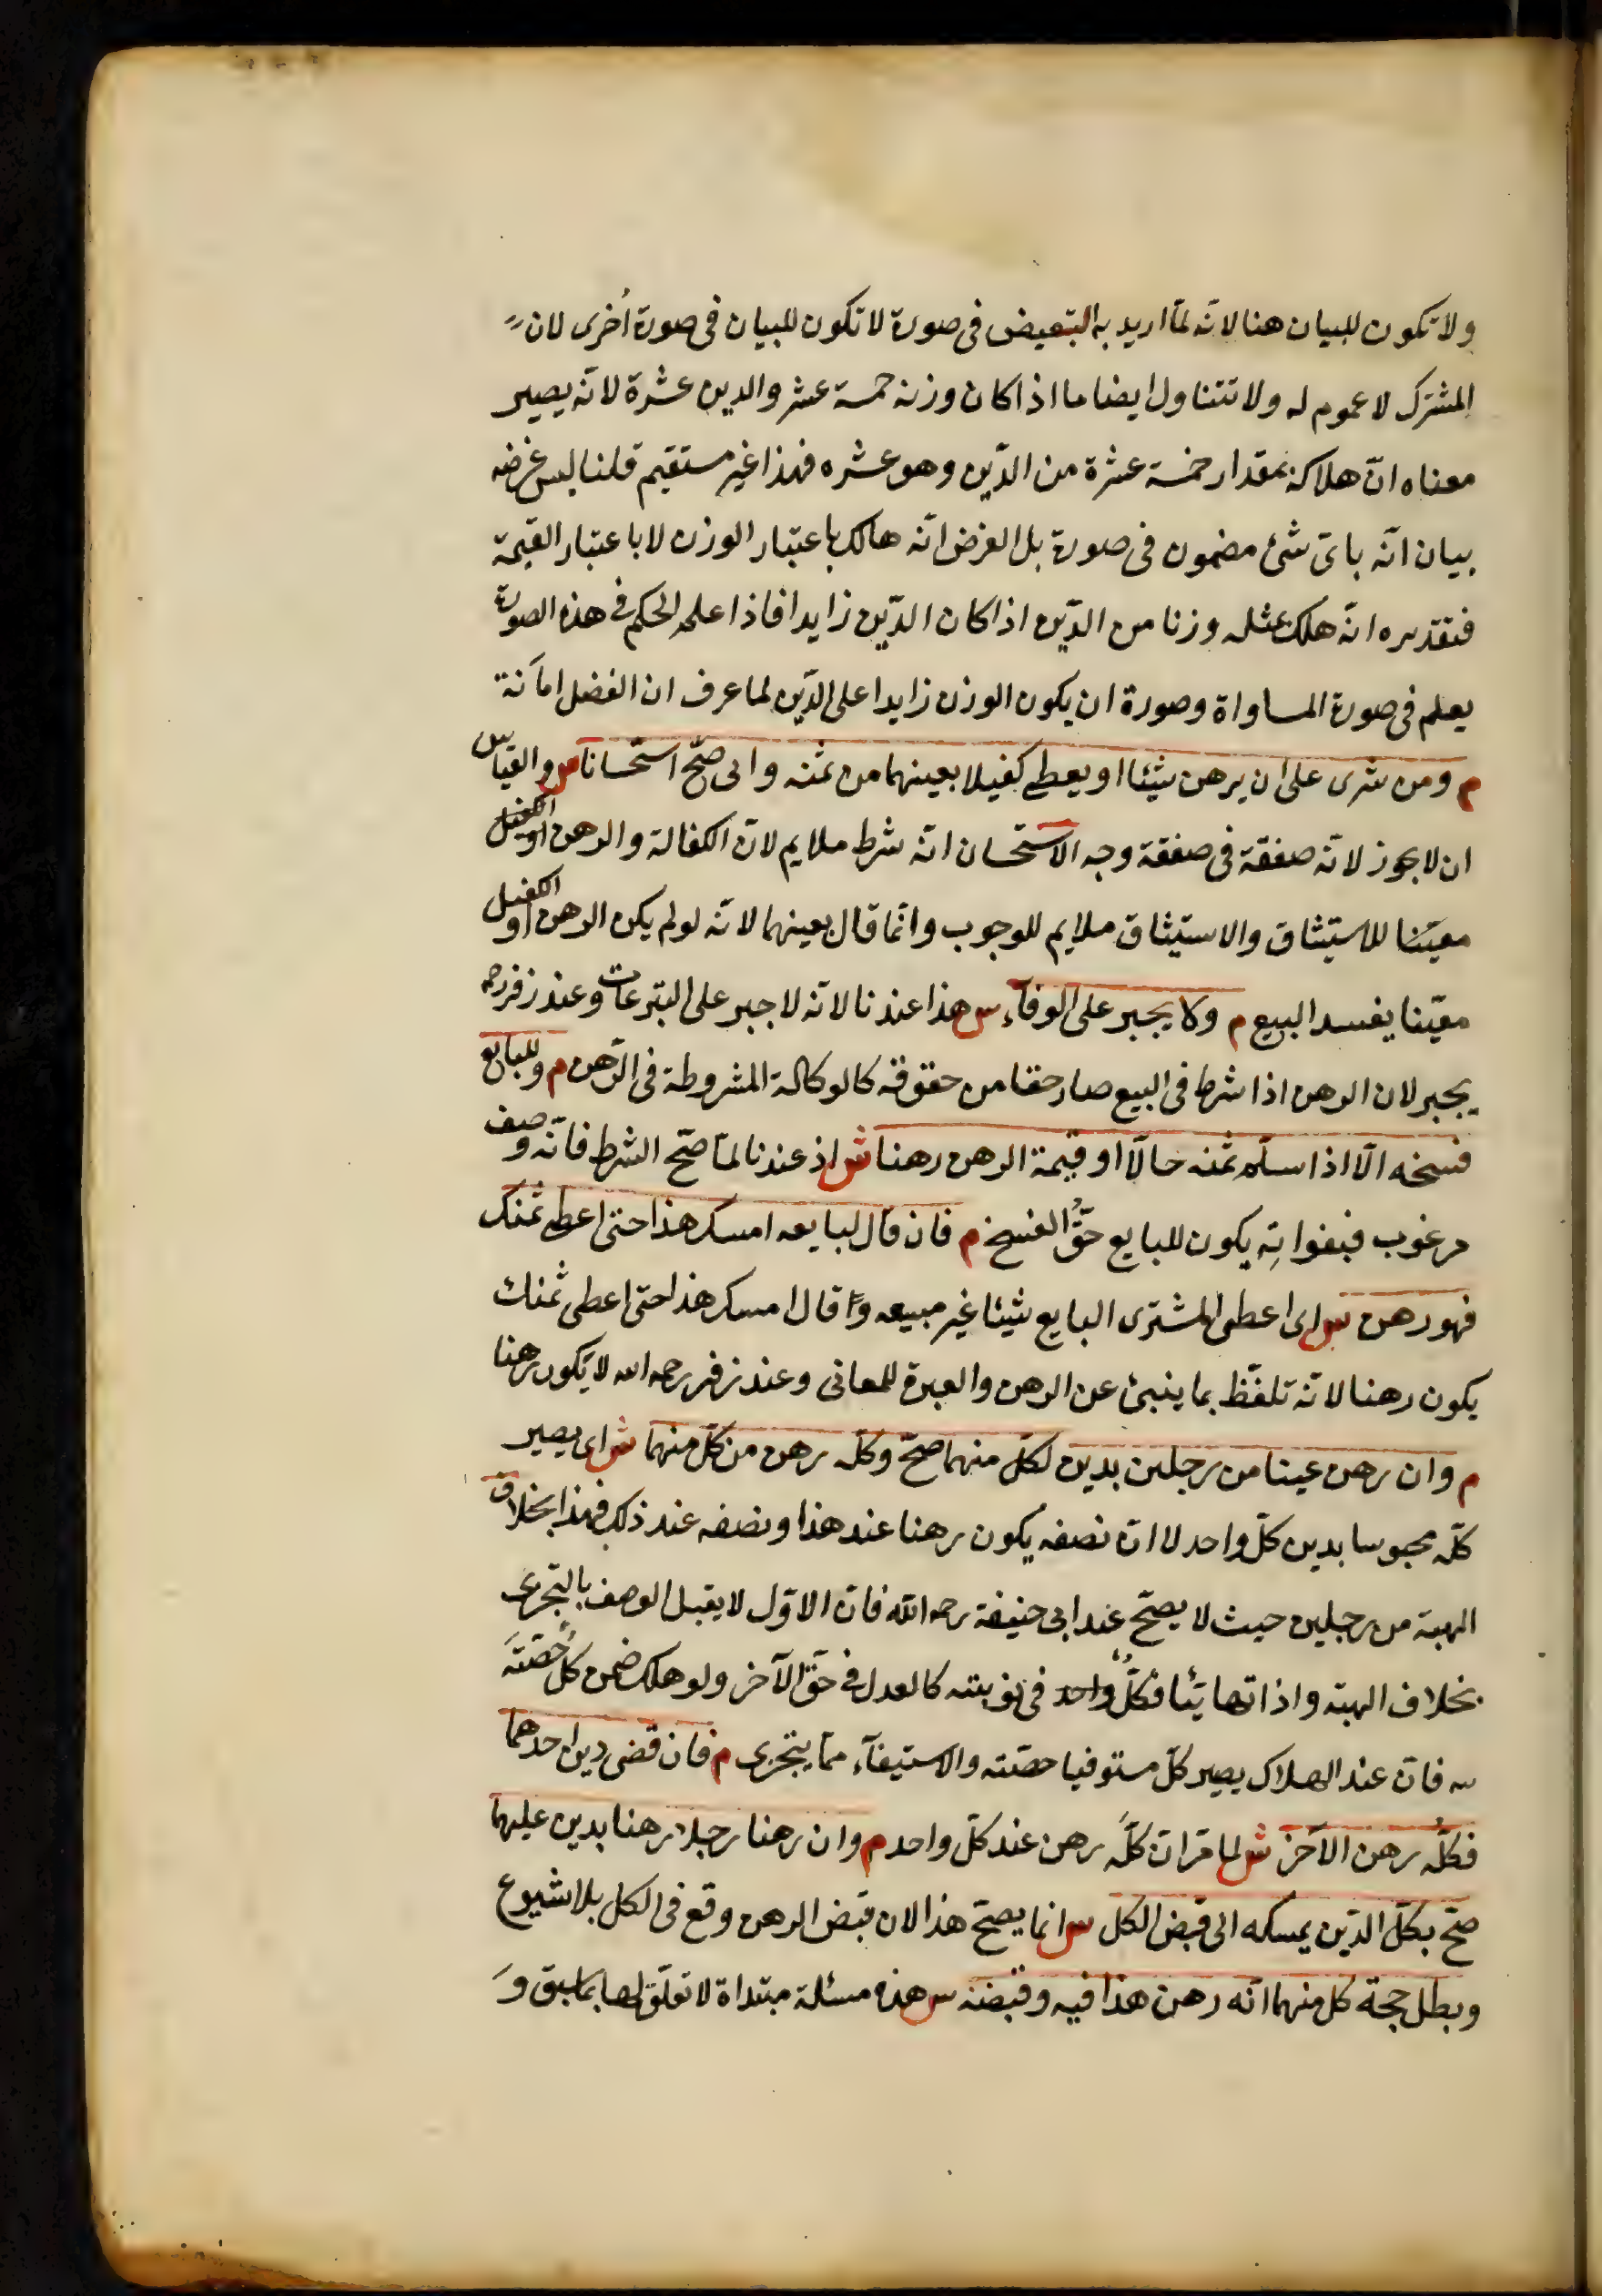 ولا تكون للبيان هنا لانّه لمّا اريد به التبعيض فى صورة لا تكون للبيان فى صورة أخرى لان
المشترك لا عموم له ولا تتناول ايضا ما اذا كان وزنه خمسة عشر والدين عشرة لانّه يصير
معناه انّ هلاكه بمقدار خمسة عشرة من الدّين وهو عشره فهذا غير مستقيم قلنا ليس غرضه
بيان انّه باىّ شئ مضمون فى صورة بل الغرض انّه هالك باعتبار الوزن لا باعتبار القيمة
فتقديره انّه هلك بمثله وزنا من الدّين اذا كان الدّين زايدا فاذا علم الحكم فى هذه الصورة
يعلم فى صورة المساواة وصورة ان يكون الوزن زايدا على الدّين لما عرف ان الفضل امانة
م ومن شرى على ان يرهن شيئا او يعطى كفيلا بعينهما من ثمنه وابى صحّ استحسانا س والقياس
ان لا يجوز لانّه صفقة فى صفقة وجه الاستحسان انّه شرط ملايم لانّ الكفالة والرهن او الكفيل
معيّنا للاستيثاق والاستيثاق ملايم للوجوب وانّما قال بعينهما لانّه لو لم يكن الرهن او الكفيل
معيّنا يفسد البيع م ولا يجبر على الوفآء س هذا عندنا لانّه لا جبر على التبرعات وعند زفر رحمه
يجبر لان الرهن اذا شرط فى البيع صار حقا من حقوقه كالوكالة المشروطة فى الرّهن م وللبايع
فسخه الّا اذا سلّم ثمنه حالّا او قيمة الرهن رهنا ش اذ عندنا لمّا صحّ الشرط فانّه وصف
مرغوب فبفواتِه يكون للبايع حقُّ الفسخ م فان قال لبايعه امسك هذا حتى اعطى ثمنك
فهو رهن س اى اعطى المشترى البايع شيئا غير مبيعه وقال امسك هذا حتى اعطى ثمنك
يكون رهنا لانّه تلفّظ بما ينبئ عن الرهن والعبرة للمعانى وعند زفر رحمه الله لا يكون رهنا
م وان رهن عينا من رجلين بدين لكلّ منهما صحّ وكلّه رهن من كلّ منهما ش اى يصير
كلّه محبوسا بدين كلّ واحد لا انّ نصفه يكون رهنا عند هذا ونصفه عند ذلك فهذا بخلاف
الهبة من رجلين حيث لا يصحّ عند ابى حنيفة رحمه الله فانّ الاوّل لا يقبل الوصف بالتجزى
بخلاف الهبة واذا تهايئا فكلُّ واحد فى نوبته كالعدل فى حقّ الآخر ولو هلك ضمن كلُّ حصّتَه
س فانّ عند الهلاك يصير كلّ مستوفيا حصّته والاستيفآء ممّا يتجزى م فان قضى دين احدهما
فكلُّه رهن الآخر ش لما مرّ انّ كلَّه رهن عند كلّ واحد م وان رهنا رجلا رهنا بدين عليهما
صحّ بكلّ الدّين يمسكه الى قبض الكل س انما يصحّ هذا لان قبض الرهن وقع فى الكل بلا شيوع
وبطل حجة كل منهما انّه رهن هذا فيه وقبضه س هذه مسئلة مبتداة لا تعلّق لها بما سبق وَ